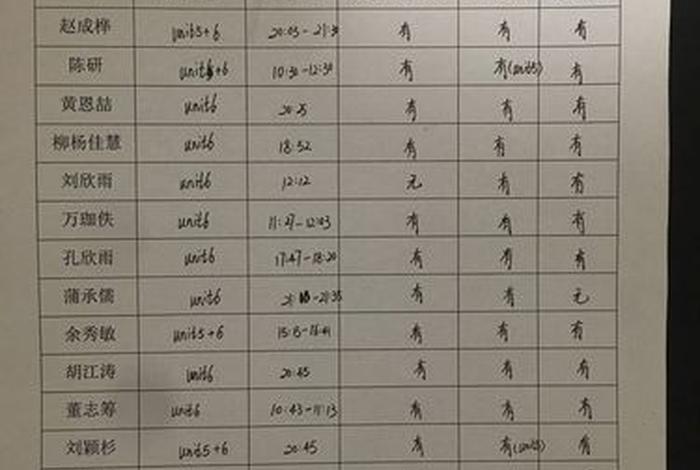 赵成桦 unit5+6 20:05-21:31 有 有 有
陈研 unit5+6 10:30-12:30 有 有(unit5) 有
黄恩喆 unit6 20:25 有 有 有
柳杨佳慧 unit6 18:52 有 有 有
刘欣雨 unit6 12:12 无 有 有
万珈佚 unit6 11:27-12:03 有 有 有
孔欣雨 unit6 17:47-18:20 有 有 有
蒲承儒 unit6 有 有 无
余秀敏 unit5+6 有 有 有
胡江涛 unit6 20:45 有 有 有
董志筹 unit6 10:43-11:13 有 有 有
刘颖杉 unit5+6 20:45 有 有(unit5) 有